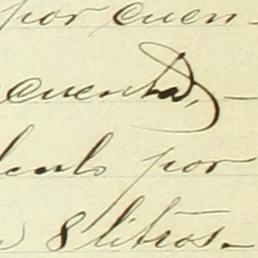 por cuen-
cuenta,-
dento por
8 litros.-